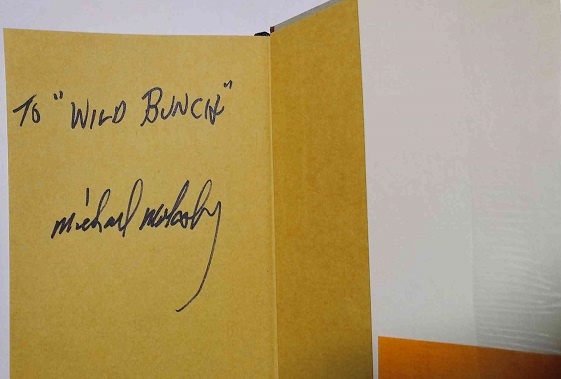 To "WILD BUNCH"
Michael Molasky